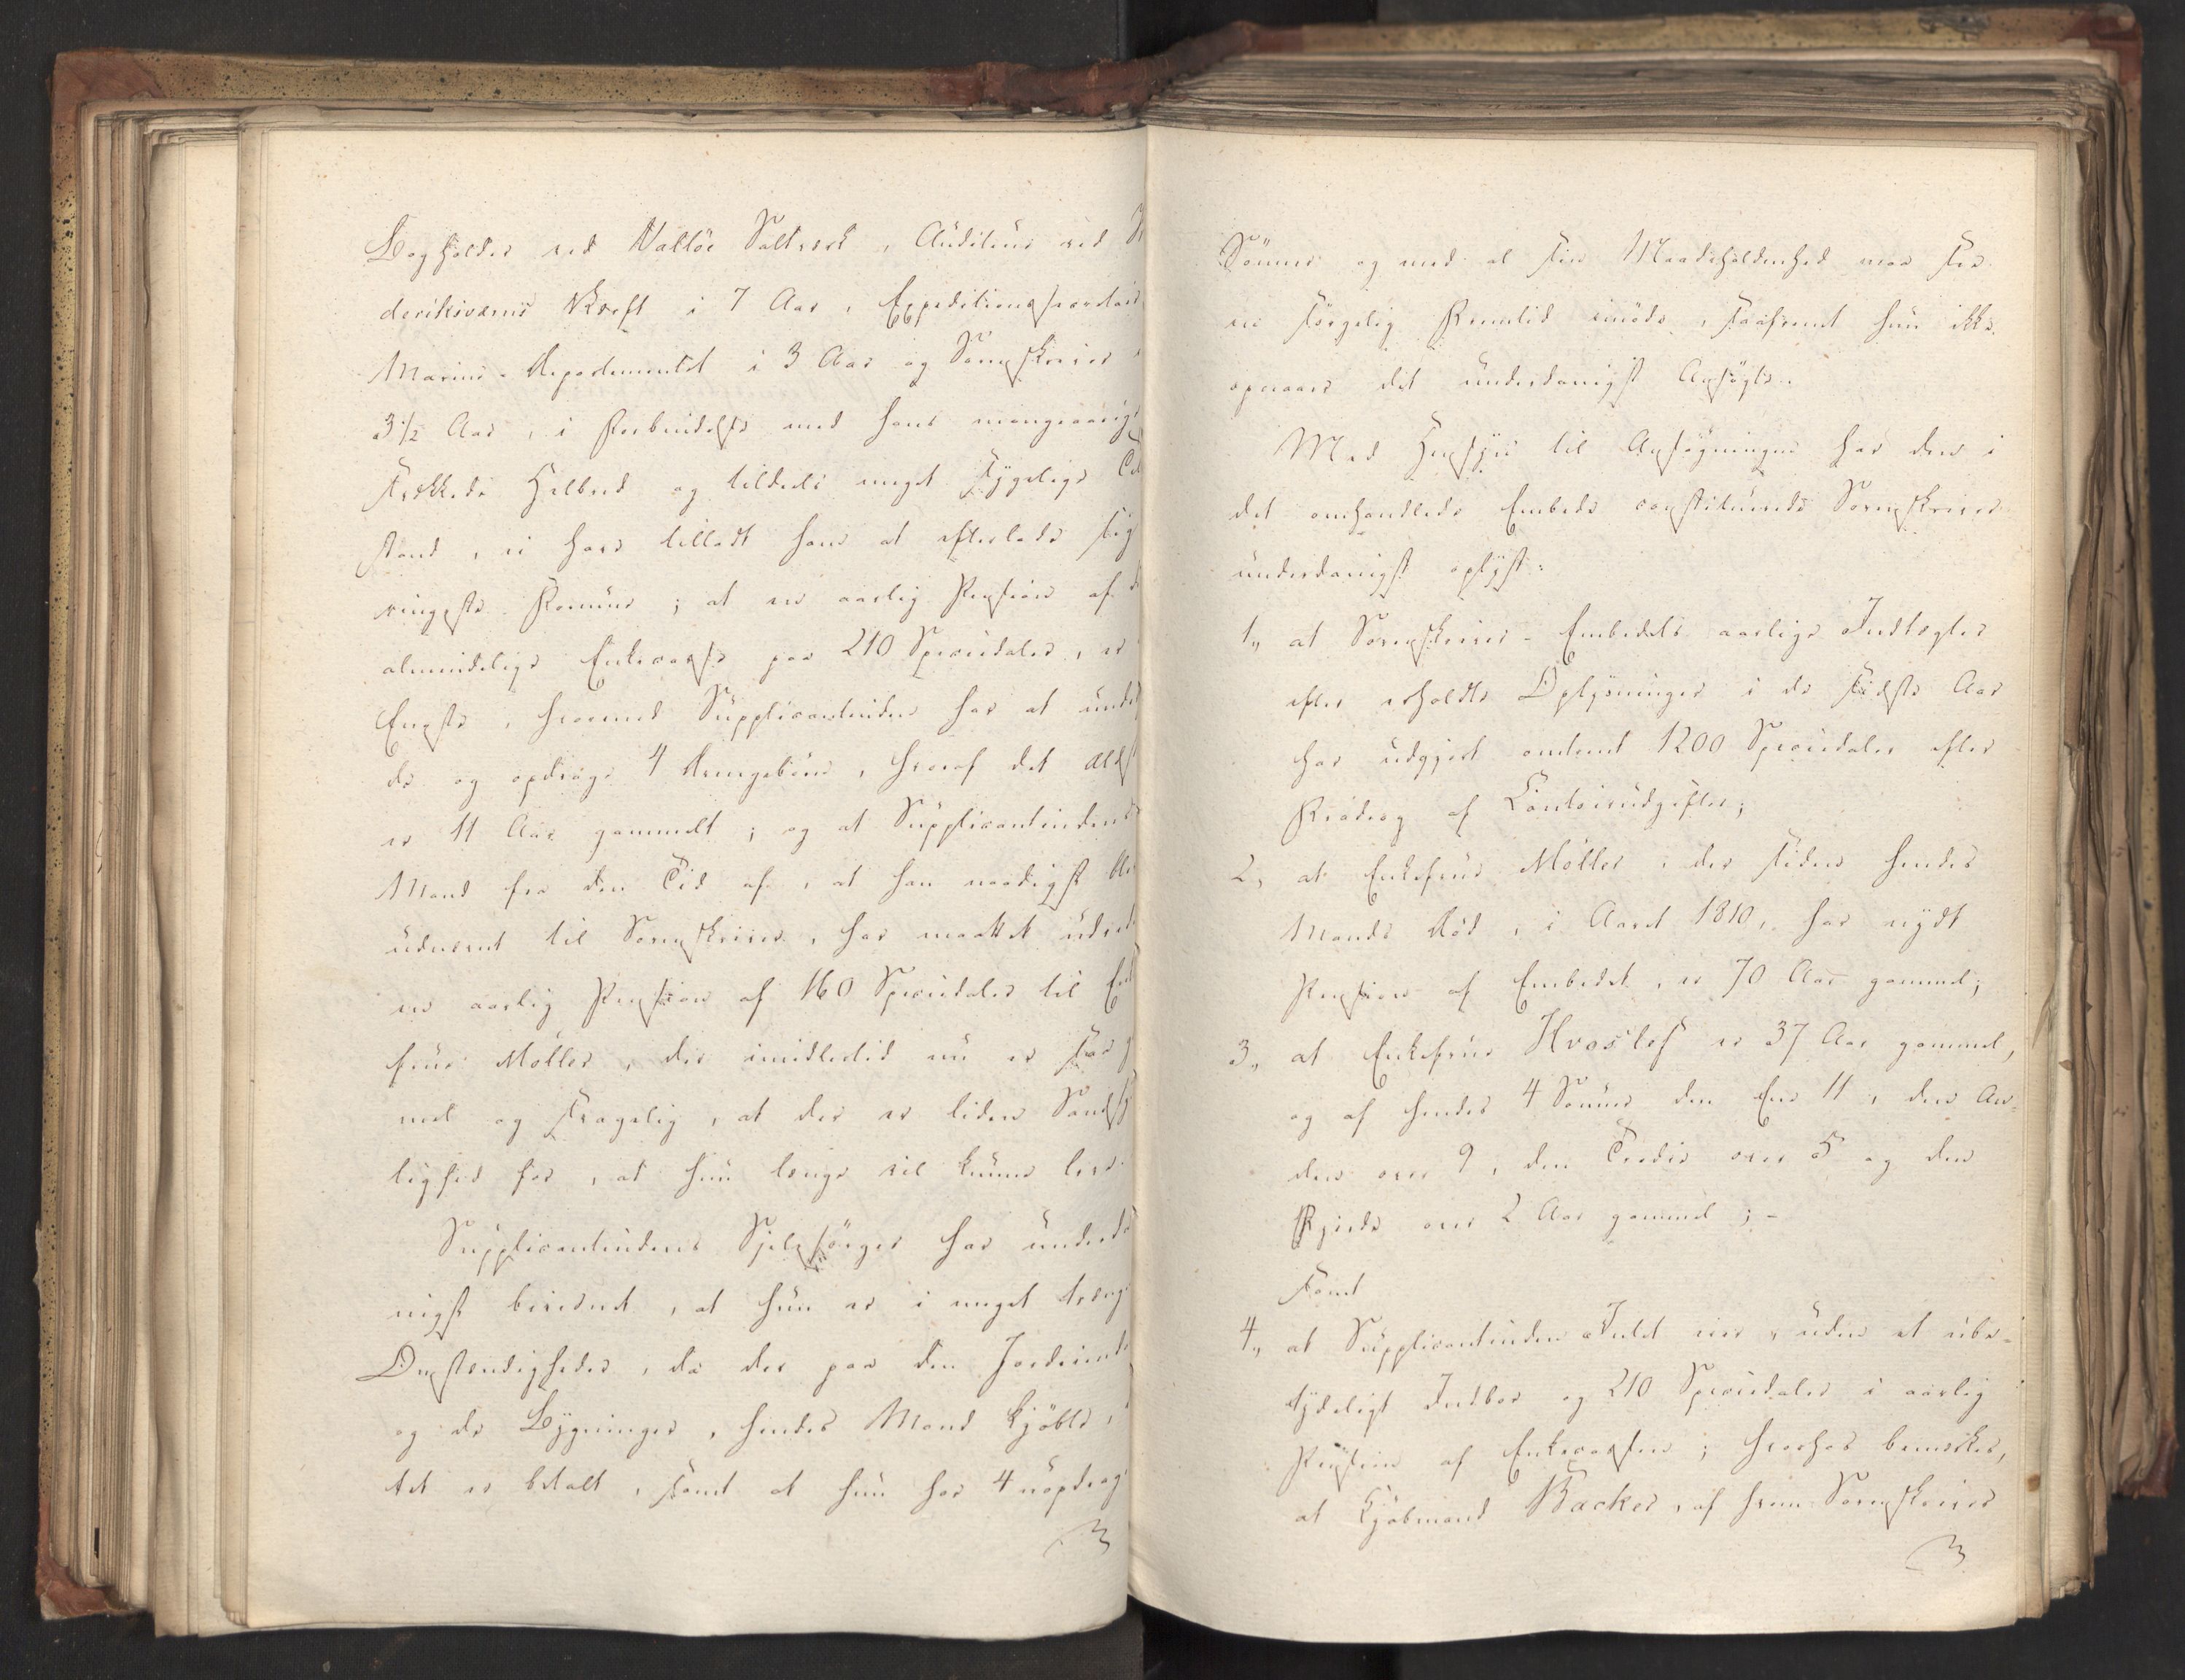 Bogholder ved Valløe Saltværk, Auditeur ved
deriksværns Værft i 7 Aar, Expeditionssecretair
Marine-Departementet i 3 Aar og Sorenskriver
3 1/2 Aar, i Forbindelse med hans mangeaarige
svækkede Helbred og tildeels meget sygelige Til
stand, ei have tilladt ham at efterlade sig
ringeste Formue; at en aarlig Pension af
almindelige Enkecasse paa 210 Speciedaler, er
Eneste, hvormed Supplicantinden har at underhol
de og opdrage 4 Drengebørn, hvoraf det ældste
er 11 Aar gammelt; og at Supplicantindens
Mand fra den Tid af, at han naadigst blev
udnævnt til Sorenskriver, har maattet udrede
en aarlig Pension af 160 Speciedaler til Enke
frue Møller, der imidlertid nu er saa gam
mel og svagelig, at der er liden Sandsyn
lighed for, at hun længe vil kunne leve.
Supplicantindens Sjelesørger har underda
nigst bevidnet, at hun er i meget trange
Omstændigheder, da der paa den Jordeiendom
og de Bygninger, hendes Mand kjøbte, in
tet er betalt, samt at hun har 4 uopdragne
Sønner og med al sin Maadeholdenhed maa see
en sørgelig Fremtid imøde, saafremt hun ikke
opnaaer det underdanigst Ansøgte.
Med Hensyn til Ansøgningen har den i
det omhandlede Embede constituerede Sorenskriver
underdanigst oplyst:
1, at Sorenskriver-Embedets aarlige Indtægter
efter erholdte Oplysninger i de sidste Aar
har udgjort omtrent 1200 Speciedaler efter
Fradrag af Contoirudgifter;
2, at Enkefrue Møller, der siden hendes
Mands Død, i Aaret 1810, har nydt
Pension af Embedet, er 70 Aar gammel;
3, at Enkefrue Hvoslef er 37 Aar gammel,
og af hendes 4 Sønner den Ene 11, den An-
den over 9, den Tredie over 5 og den
Fjerde over 2 Aar gammel; -
samt
4, at Supplicantinden Intet eier, uden et ube-
tydeligt Indboe og 210 Speciedaler i aarlig
Pension af Enkecassen; hvorhos bemærkes,
at Kjøbmand Backer, af hvem Sorenskriver